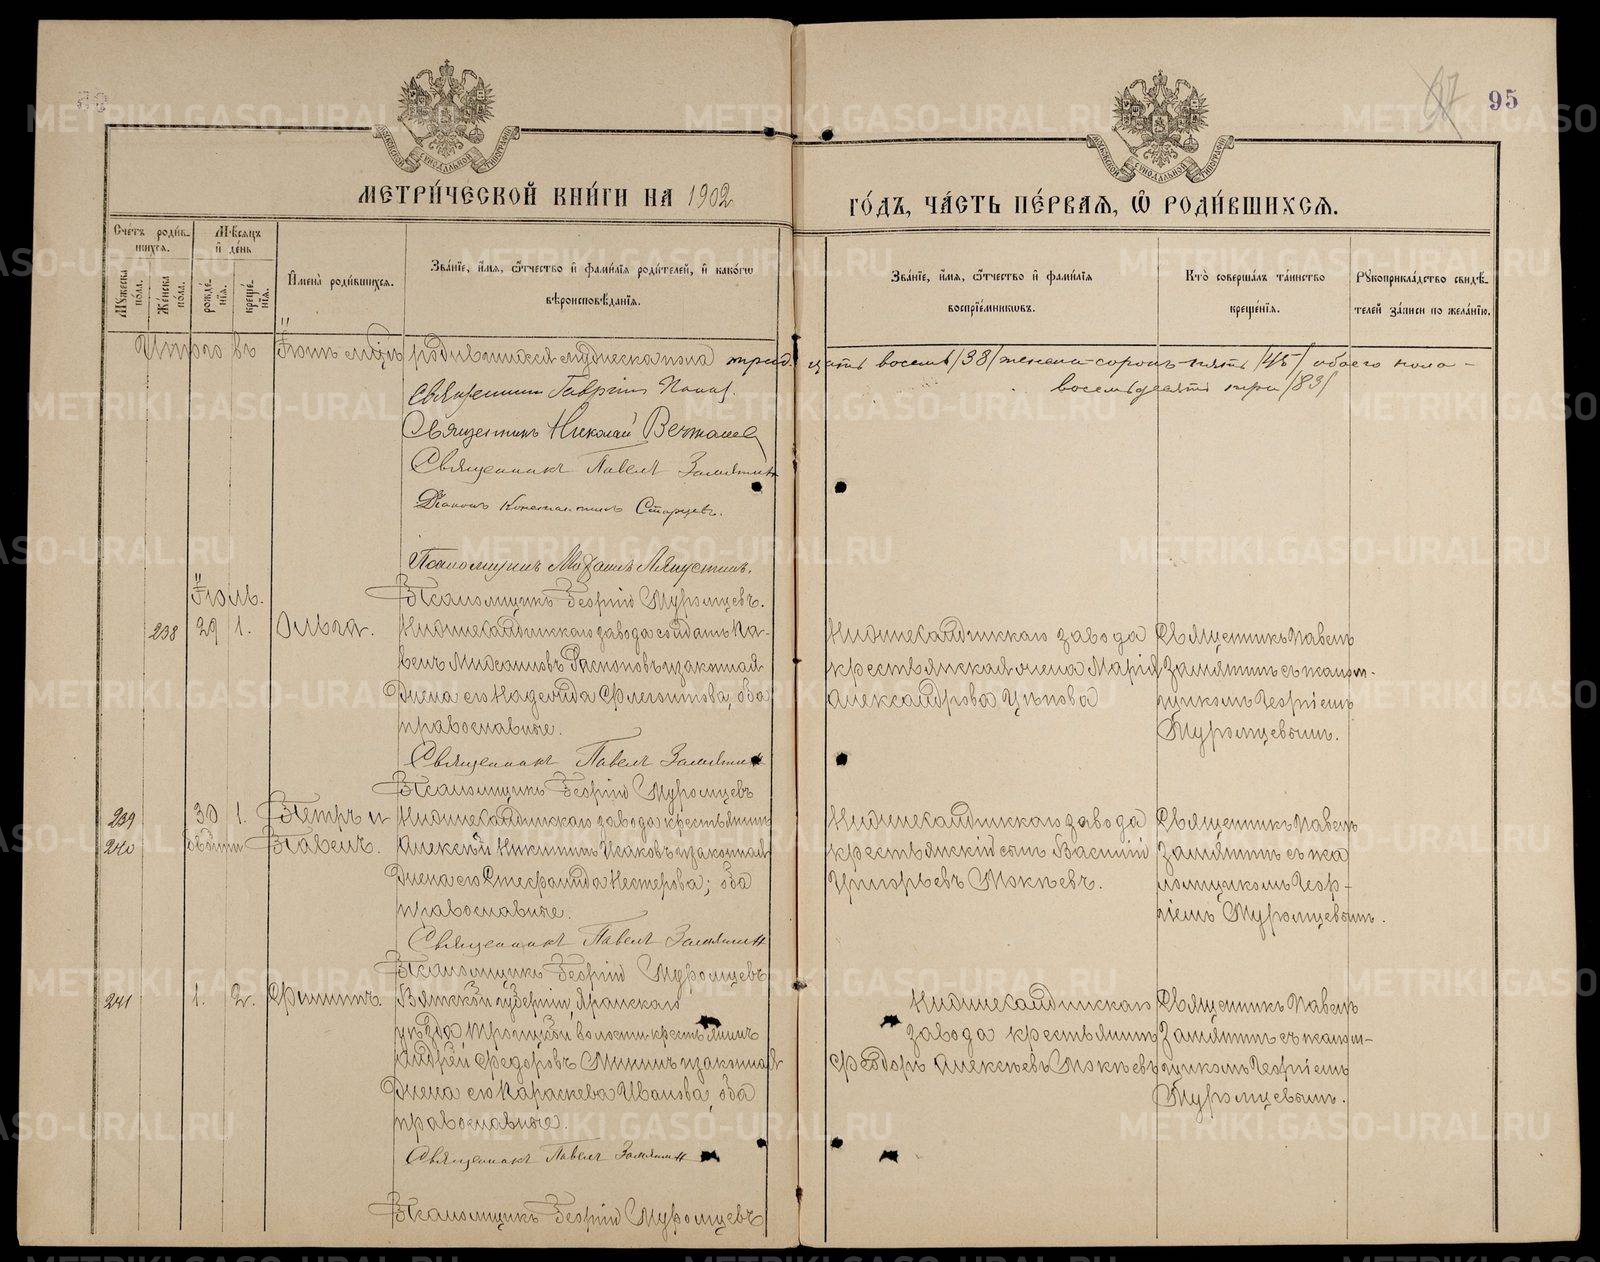 95
МЕТРИ́ЧЕСКОЙ КНИ́ГИ НА 1902
ГО́ДЪ, ЧА́СТЬ ПЕ́РВАЯ, Ѿ РОДИ́ВШИХСЯ.
МОСКОВСКОЙ СѴНОДАЛЬНОЙ ТИПОГРАФІИ
МОСКОВСКОЙ СѴНОДАЛЬНОЙ ТИПОГРАФІИ
Счетъ роди́в-
шихся.
Му́жеска пола.
Же́нска по́ла.
Мѣ́сяцъ
и де́нь
рожде́нія.
креще́нія.
И́мена роди́вшихся.
Зва́ніе, и́мя, ѻ҆́тчество и фами́лія роди́телей, и како́гѡ
вѣроисповѣ́данія.
Зва́ніе, и́мя, ѻ҆́тчество и фами́лія
воспріе́мниковъ.
Кто̀ соверша́лъ та́инство
креще́нія.
Рукоприкла́дство свидѣ́-
телей за́писи по жела́нію.
Итого въ Іюнѣ мѣсяцѣ родившихся мужеска пола тридцать восемь /38/ женска - сорокъ пять /45/ обоего пола -
восемьдесятъ три /83/
Священникъ Гавріилъ Попов.
Священникъ Николай
Священникъ Павелъ Замятин
Діаконъ Константинъ Старцевъ.
Псаломщикъ Михаилъ Ляпустинъ.
Псаломщикъ Георгій Муромцевъ.
Іюль.
238
29
1.
Ольга.
Нижнесалдинскаго завода солдатъ Па-
велъ Михаиловъ Распоповъ и законная
жена его Надежда Флегонтова, оба
православные.
Нижнесалдинскаго завода
крестьянская жена Марія
Александрова Цѣпова
Священникъ Павелъ
Замятинъ съ псалом-
щикомъ Георгіемъ
Муромцевымъ.
Священникъ Павелъ Замятин
Псаломщикъ Георгій Муромцевъ
239
240
30
1.
двойни
Петръ и
Павелъ.
Нижнесалдинскаго завода крестьянинъ
Алексѣй Никитинъ Исаковъ и законная
жена его Стефанида Нестерова; оба
православные.
Нижнесалдинскаго завода
крестьянскій сынъ Василій
Григорьевъ Мокѣевъ.
Священникъ Павелъ
Замятинъ съ пса
ломщикомъ Геор-
гіемъ Муромцевымъ.
Священникъ Павелъ Замятин
Псаломщикъ Георгій Муромцевъ
241
1.
2.
Филиппъ.
Вятской губерніи, Яранскаго
уѣзда Троицкой волости крестьянинъ
Андрей Федоровъ Мининъ и законная
жена его Параскева Иванова, оба
православные.
Нижнесалдинскаго
завода крестьянинъ
Феодоръ Алексѣевъ Мокѣевъ
Священникъ Павелъ
Замятинъ съ псалом-
щикомъ Георгіемъ
Муромцевымъ.
Священникъ Павелъ Замятин
Псаломщикъ Георгій Муромцевъ
METRIKI.GASO-URAL.RU